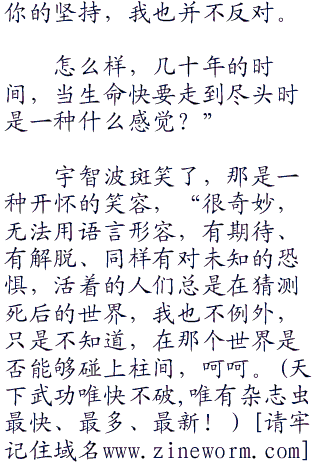 你的坚持，我也并不反对。
怎么样，几十年的时
间，当生命快要走到尽头时
是一种什么感觉？”
宇智波斑笑了，那是一
种开怀的笑容，“很奇妙，
无法用语言形容，有期待、
有解脱、同样有对未知的恐
惧，活着的人们总是在猜测
死后的世界，我也不例外，
只是不知道，在那个世界是
否能够碰上柱间，呵呵。（天
下武功唯快不破,唯有杂志虫
最快、最多、最新！）[请牢
记住域名www.zineworm.com]